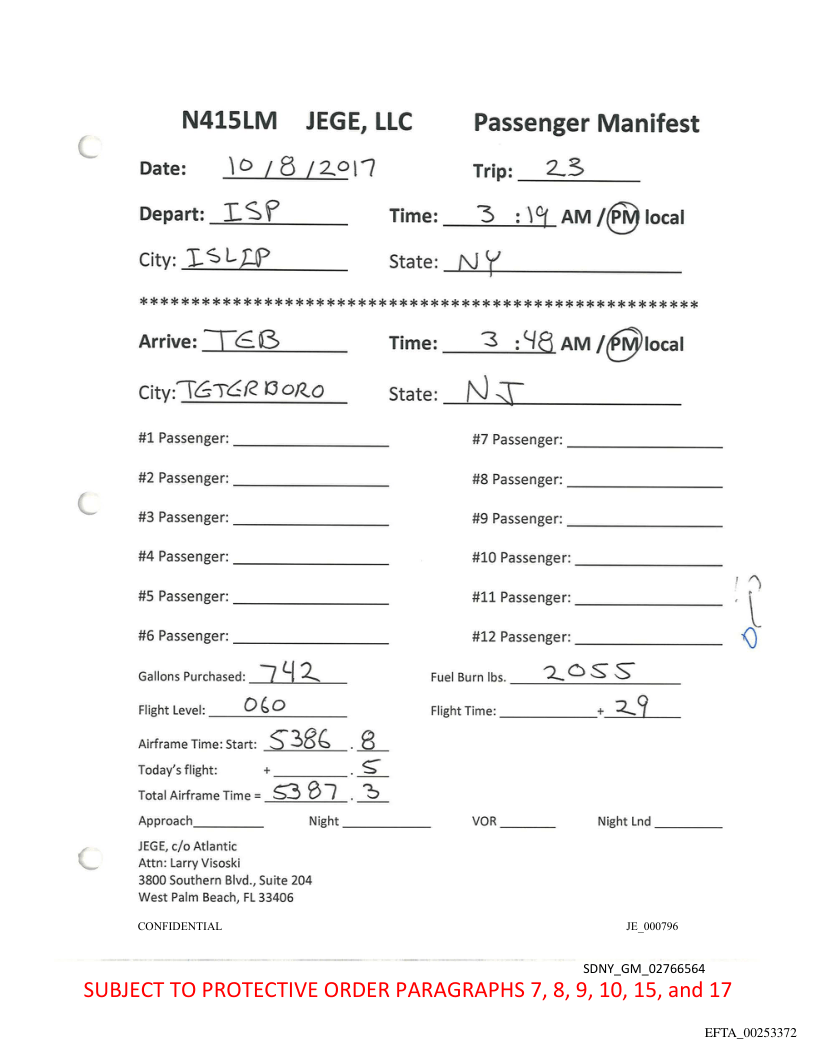 N415LM JEGE, LLC Passenger Manifest
Date: 10/8/2017 Trip: 23
Depart: ISP Time: 3:19 AM / PM local
City: ISLIP State: NY
******************************************************
Arrive: TEB Time: 3:48 AM / PM local
City: TETERBORO State: NJ
#1 Passenger: #7 Passenger:
#2 Passenger: #8 Passenger:
#3 Passenger: #9 Passenger:
#4 Passenger: #10 Passenger:
#5 Passenger: #11 Passenger:
#6 Passenger: #12 Passenger:
Gallons Purchased: 742 Fuel Burn lbs. 2055
Flight Level: 060 Flight Time: + 29
Airframe Time: Start: 5386.8
Today's flight: + .5
Total Airframe Time = 5387.3
Approach Night VOR Night Lnd
JEGE, c/o Atlantic
Attn: Larry Visoski
3800 Southern Blvd., Suite 204
West Palm Beach, FL 33406
CONFIDENTIAL JE_000796
SDNY_GM_02766564
SUBJECT TO PROTECTIVE ORDER PARAGRAPHS 7, 8, 9, 10, 15, and 17
EFTA_00253372